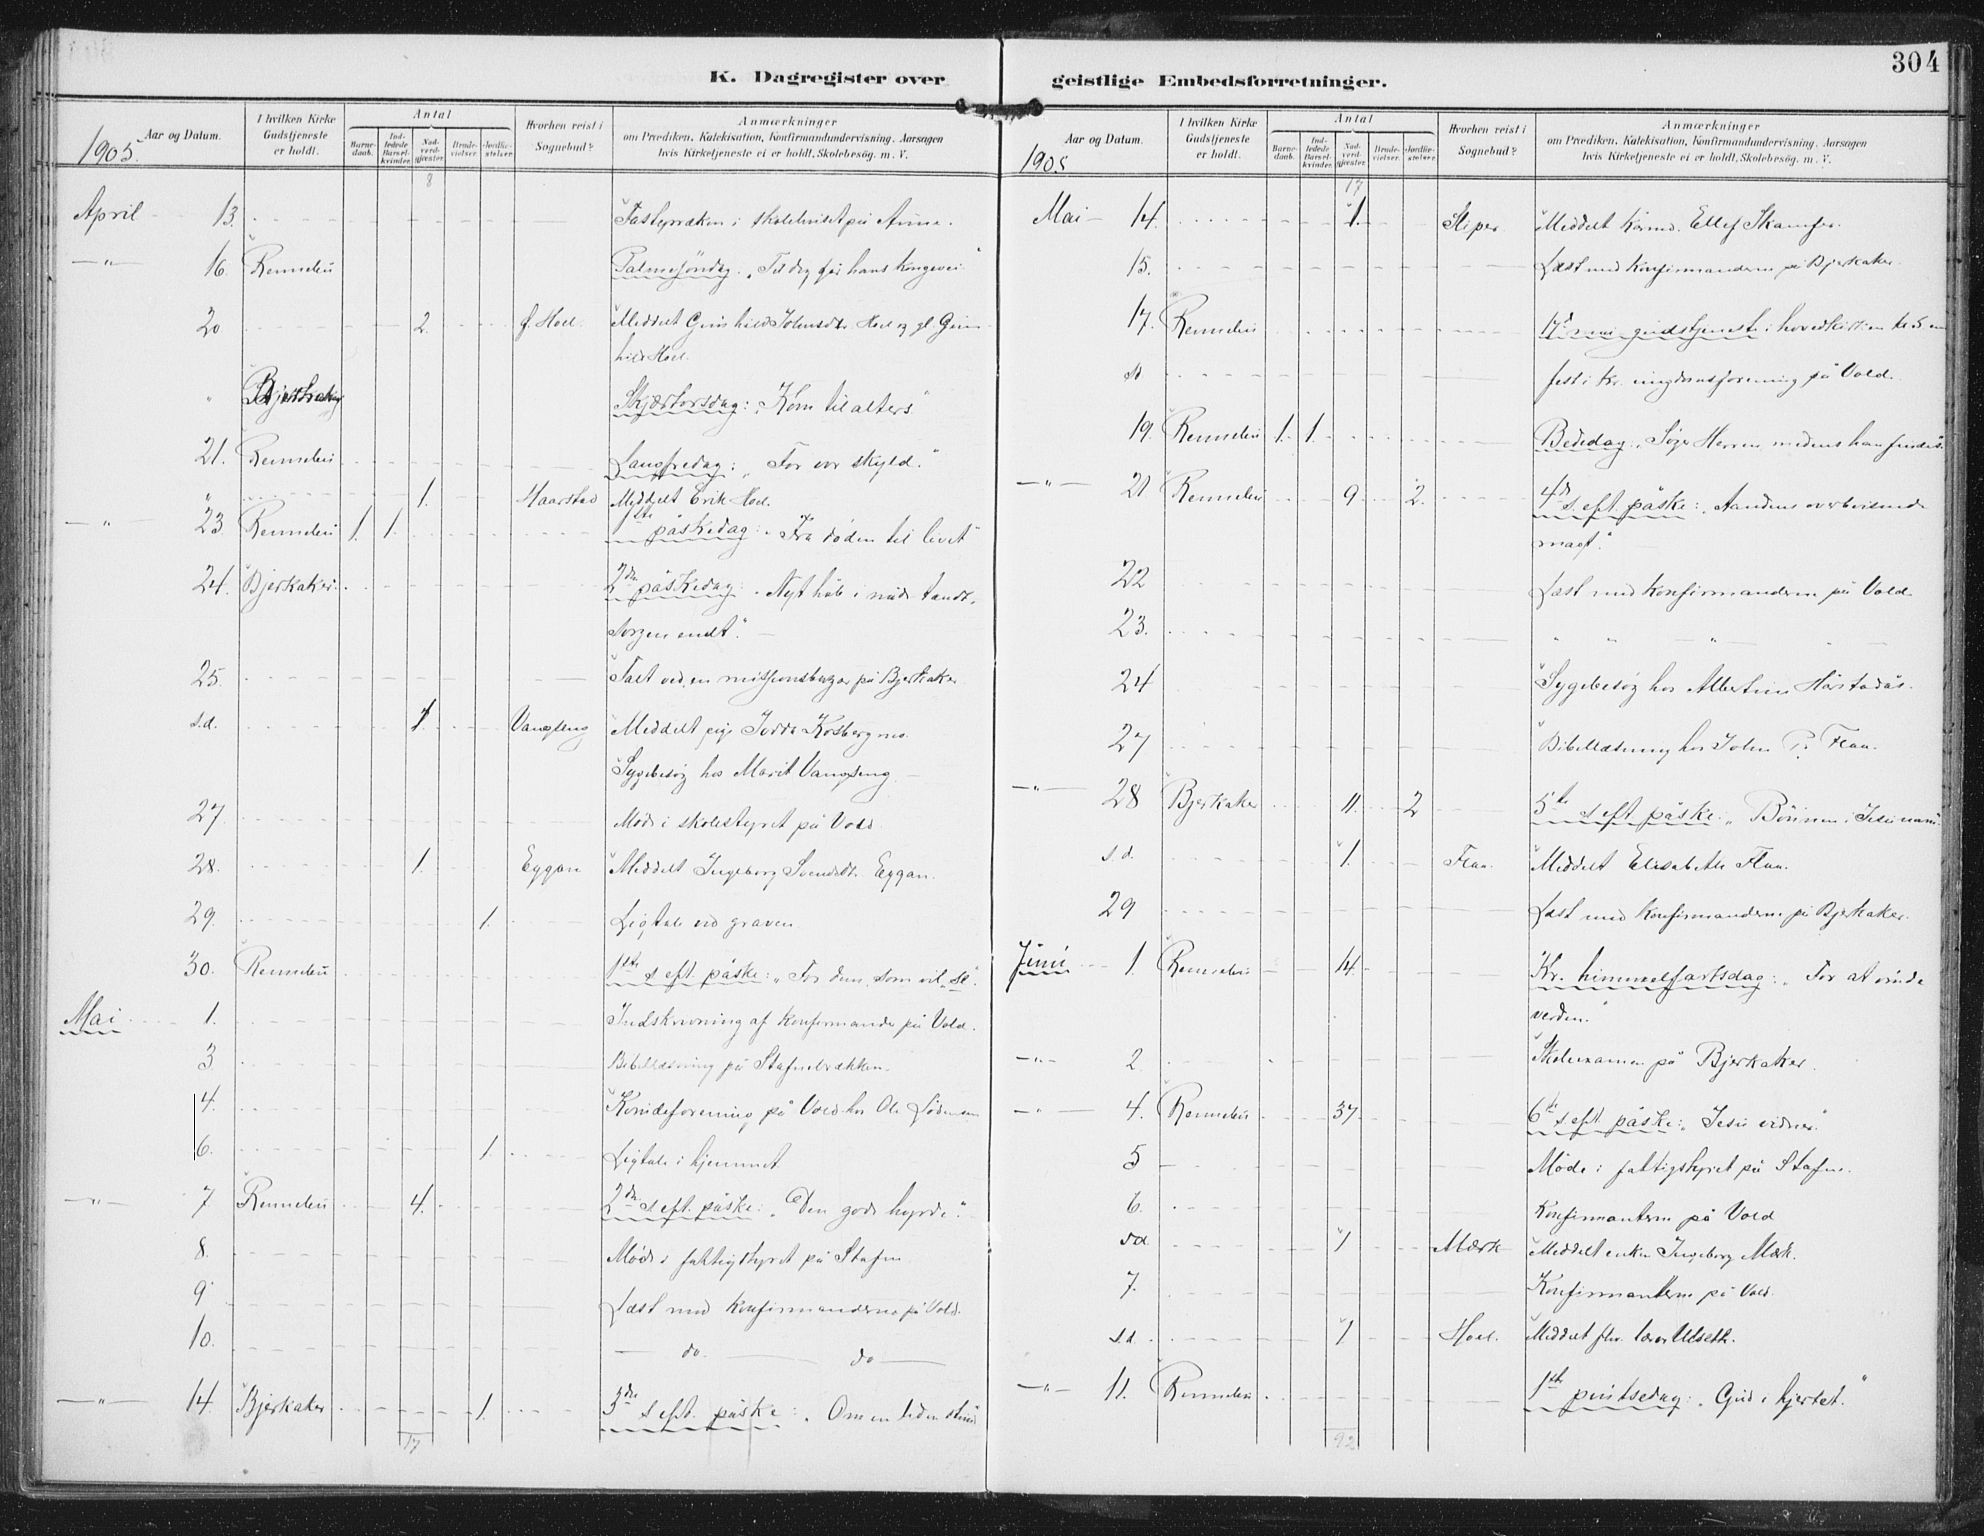 304
K. Dagregister over geistlige Embedsforretninger.
Aar og Datum.
I hvilken Kirke Gudstjeneste er holdt.
Antal
Barne-daab.
Ind-ledede Barsel-kvinder.
Nad-verd-gjester.
Brude-vielser.
Jordfæ-stelser.
Hvorhen reist i Sognebud?
Anmærkninger
om Prædiken, Katekisation, Konfirmandundervisning, Aarsagen
hvis Kirketjeneste ei er holdt, Skolebesøg, m. V.
1905.
8
April 13. Fastepræken i skolehuset på
" 16. Rennebu Palmesöndag. "
20 2. f. Hoel. Meddelt Gunhild Johnsdtr. Hoel og gl. Gun-
hild Hoel.
" Skjærtorsdag: "Kom til alters."
21. Rennebu Langfredag: "For vor skyld."
" 1. Haarstad Meddelt Erik Hoel.
" 23 Rennebu 1. 1. 1ste påskedag: "Fra döden til livet"
24. Bjerkaker. 2den påskedag: "Nyt håb i nåde tændt,
sorgen endt."
25. Talt ved en missionsbazar på Bjerkaker
s.d. 1. Vangseng Meddelt pige
Sygebesög hos Marit Vangseng
27. Möde i skolestyret på Vold
28. 1. Eggan Meddelt Ingeborg Svendsdtr. Eggan.
29. 1. Ligtale ved graven.
30. Rennebu 1ste s. eft. påske: "For dem, som vil se".
Mai 1. Indskrivning af konfirmander på Vold.
3 Bibellæsning på
4. Kvindeforening på Vold hos Ole
6. 1. Ligtale i hjemmet
" 7 Rennebu 4. 2den s. eft. påske: "Den gode hyrde".
8. Möde i fattigstyret på Stafne
9 Læst med konfirmanderne på Vold.
10. do. do
" 14. Bjerkaker 1. 3die s. eft. påske: "Om en liden stund
17
Aar og Datum.
I hvilken Kirke Gudstjeneste er holdt.
Antal
Barne-daab.
Ind-ledede Barsel-kvinder.
Nad-verd-gjester.
Brude-vielser.
Jordfæ-stelser.
Hvorhen reist i Sognebud?
Anmærkninger
om Prædiken, Katekisation, Konfirmandundervisning, Aarsagen
hvis Kirketjeneste ei er holdt, Skolebesøg, m. V.
1905
17
Mai 14. 1. Stiper Meddelt Ellef Skamfer.
15. Læst med konfirmanderne på Bjerkaker.
17. Rennebu 17de mai gudstjeneste i hovedkirken
sd fest i kr. ungdomsforening på Vold.
19. Rennebu 1. 1. Bededag. "Søg Herren medens han findes".
" 21 Rennebu 9 2. 4de s. eft. påske: "Aandens overbevisende
magt."
22 Læst med konfirmanderne på Vold.
23. " " " "
24 Sygebesög hos
27 Bibellæsning hos John P. Flaa.
" 28 Bjerkaker 11. 2 5te s. eft. påske: "Bönnen i Jesu navn".
s.d. 1. Flaa. Meddelt Elisabeth Flaa.
29 Læst med konfirmanderne på Bjerkaker.
Juni 1. Rennebu 14. Kr. himmelfartsdag: "For at vinde
verden."
" 2. Skoleexamen på Bjerkaker.
" 4. Rennebu 37 6te s. eft. påske: "Jesu vidner."
5 Möde i fattigstyret på Stafne.
6. Konfirmanterne på Vold
sd 1 Mærk Meddelt enken Ingeborg Mærk.
7. Konfirmanterne på Vold.
s.d. 1 Hoel. Meddelt lærer Ulseth.
" 11. Rennebu 1ste pintsedag: "Gud i hjertet."
92